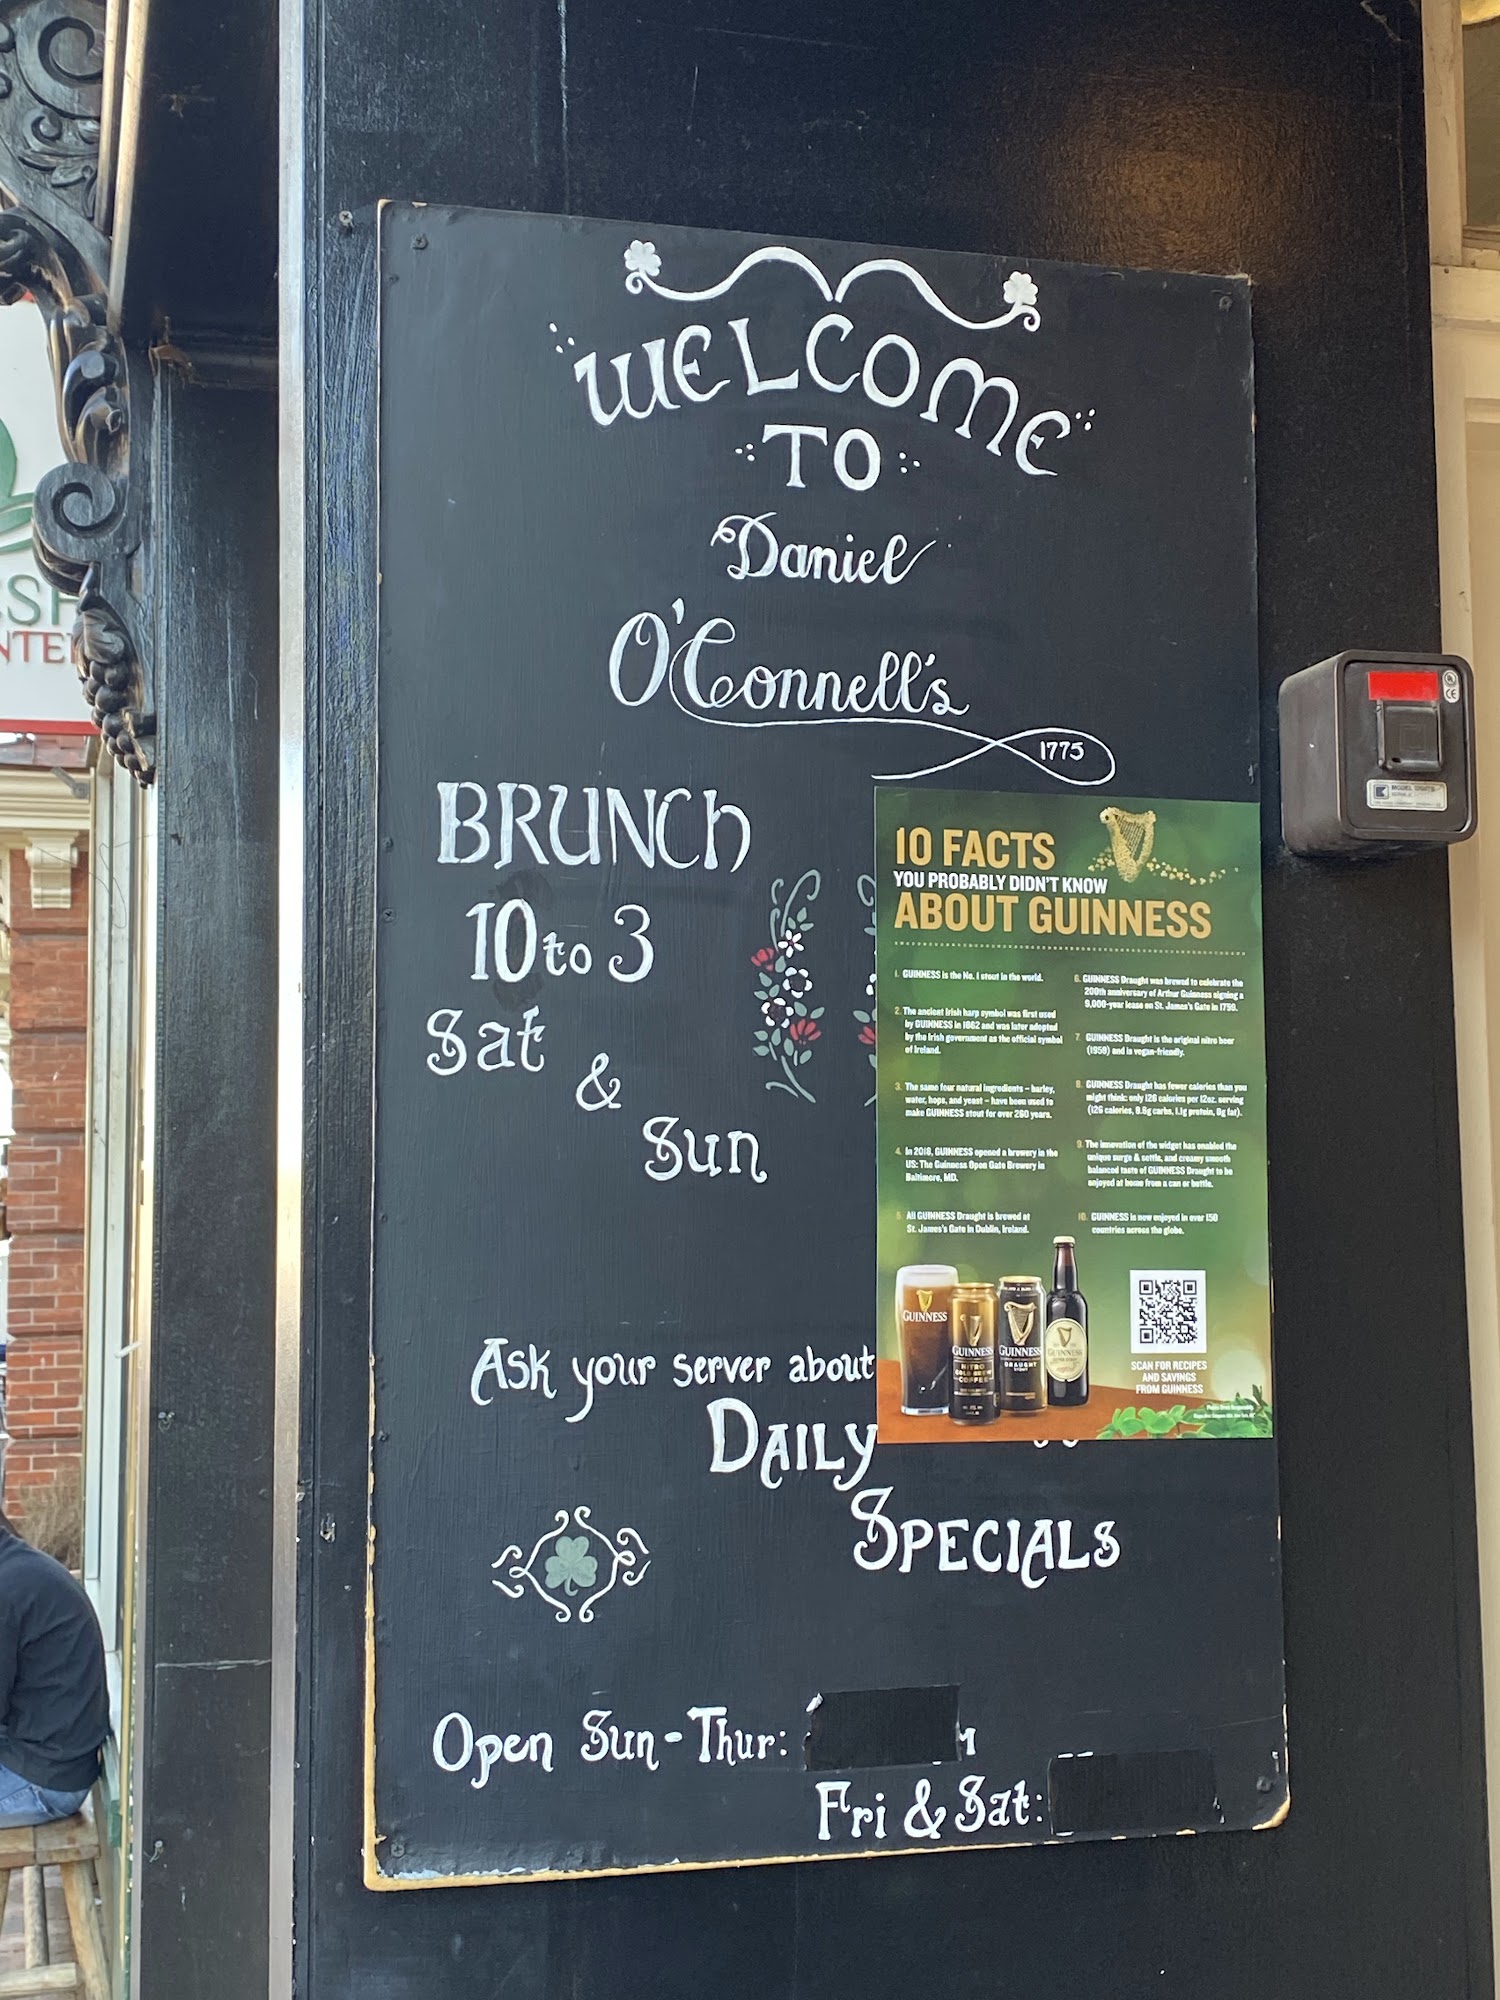 WELCOME
TO
Daniel
O'Connell's
1775
BRUNCh
10 to 3
Sat
&
Sun
10 FACTS
YOU PROBABLY DIDN'T KNOW
ABOUT GUINNESS
1. GUINNESS is the No. 1 stout in the world.
2. The ancient Irish harp symbol was first used
by GUINNESS in 1862 and was later adopted
by the Irish government as the official symbol
of Ireland.
3. The same four natural ingredients – barley,
water, hops, and yeast – have been used to
make GUINNESS stout for over 260 years.
4. In 2018, GUINNESS opened a brewery in the
US: The Guinness Open Gate Brewery in
Baltimore, MD.
5. All GUINNESS Draught is brewed at
St. James's Gate in Dublin, Ireland.
6. GUINNESS Draught was brewed to celebrate the
200th anniversary of Arthur Guinness signing a
9,000-year lease on St. James's Gate in 1759.
7. GUINNESS Draught is the original nitro beer
(1959) and is vegan-friendly.
8. GUINNESS Draught has fewer calories than you
might think: only 126 calories per 12oz. serving
(126 calories, 9.6g carbs, 1.1g protein, 0g fat).
9. The innovation of the widget has enabled the
unique surge & settle, and creamy smooth
balanced taste of GUINNESS Draught to be
enjoyed at home from a can or bottle.
10. GUINNESS is now enjoyed in over 150
countries across the globe.
GUINNESS
GUINNESS
NITRO
COLD BREW
COFFEE
GUINNESS
DRAUGHT
STOUT
GUINNESS
SCAN FOR RECIPES
AND SAVINGS
FROM GUINNESS
Ask your server about
DAILY
SPECIALS
Open Sun-Thur:
Fri & Sat: